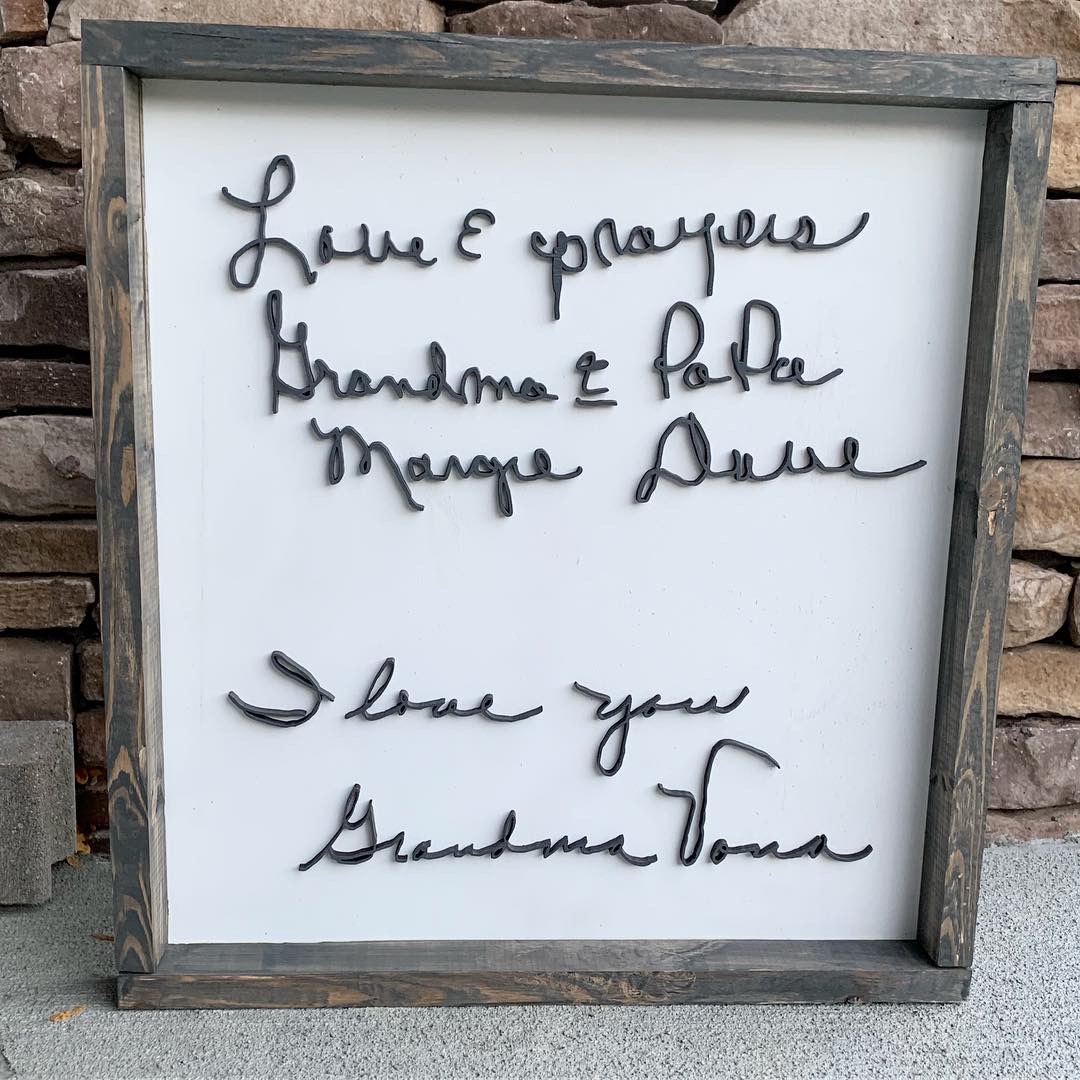 Love & prayers
Grandma & PaPa
Margie Dave
I love you
Grandma Vona